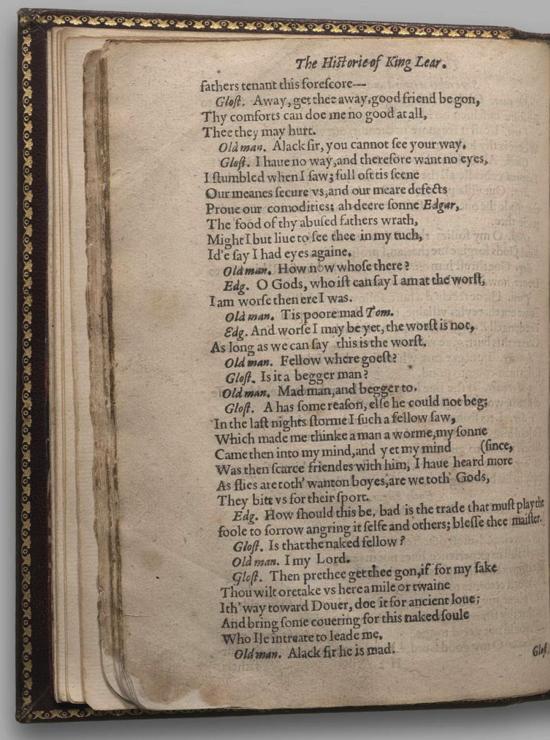 The Historie of King Lear.
fathers tenant this forescore—
Glost. Away, get thee away, good friend be gon,
Thy comforts can doe me no good at all,
Thee they may hurt.
Old man. Alack sir, you cannot see your way.
Glost. I haue no way, and therefore want no eyes,
I stumbled when I saw; full oft tis seene
Our meanes secure vs, and our meare defects
Proue our comodities: ah deere sonne Edgar,
The food of thy abused fathers wrath,
Might I but liue to see thee in my tuch,
Id'e say I had eyes againe.
Old man. How now whose there?
Edg. O Gods, who ist can say I am at the worst,
I am worse then ere I was.
Old man. Tis poore mad Tom.
Edg. And worse I may be yet, the worst is not,
As long as we can say this is the worst.
Old man. Fellow where goest?
Glost. Is it a begger man?
Old man. Mad man, and begger to.
Glost. A has some reason, else he could not beg;
In the last nights storme I such a fellow saw,
Which made me thinke a man a worme, my sonne
Came then into my mind, and yet my mind (since,
Was then scarce friendes with him, I haue heard more
As flies are toth' wanton boyes, are we toth' Gods,
They bitt vs for their sport.
Edg. How should this be, bad is the trade that must play the
foole to sorrow angring it selfe and others; blesse thee maister.
Glost. Is that the naked fellow?
Old man. I my Lord.
Glost. Then prethee get thee gon, if for my sake
Thou wilt oretake vs here a mile or twaine
Ith' way toward Douer, doe it for ancient loue;
And bring some couering for this naked soule
Who Ile intreate to leade me.
Old man. Alack sir he is mad.
Glos.